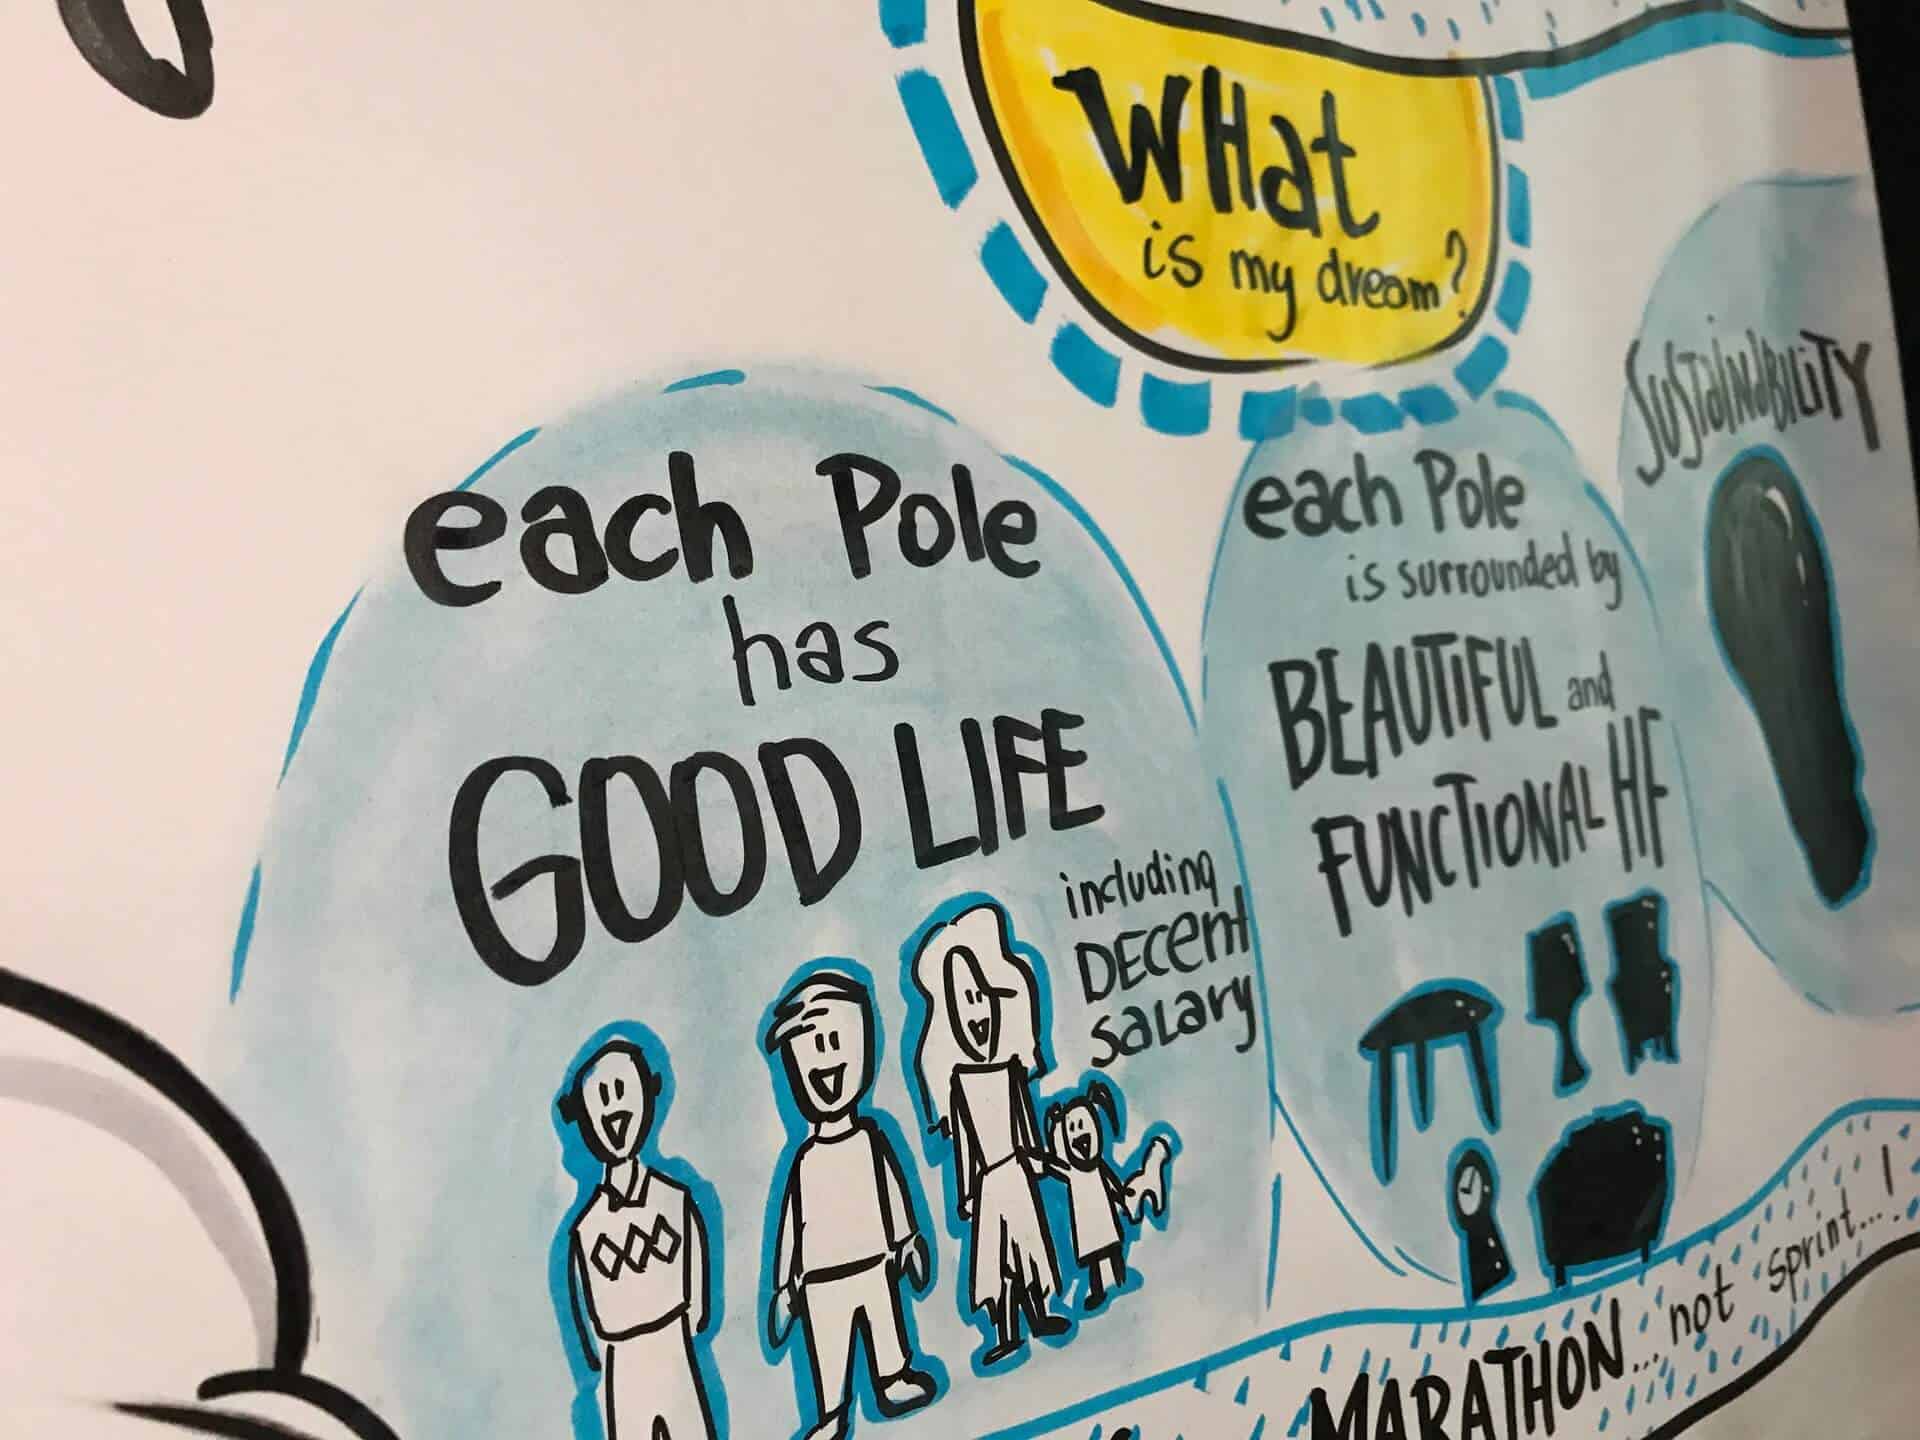 WHat
is my dream?
each Pole
has
GOOD LIFE
including
DECENT
SALARY
each Pole
is surrounded by
BEAUTIFUL and
FUNCTIONAL HF
SUSTAINABILITY
MARATHON... not sprint...!